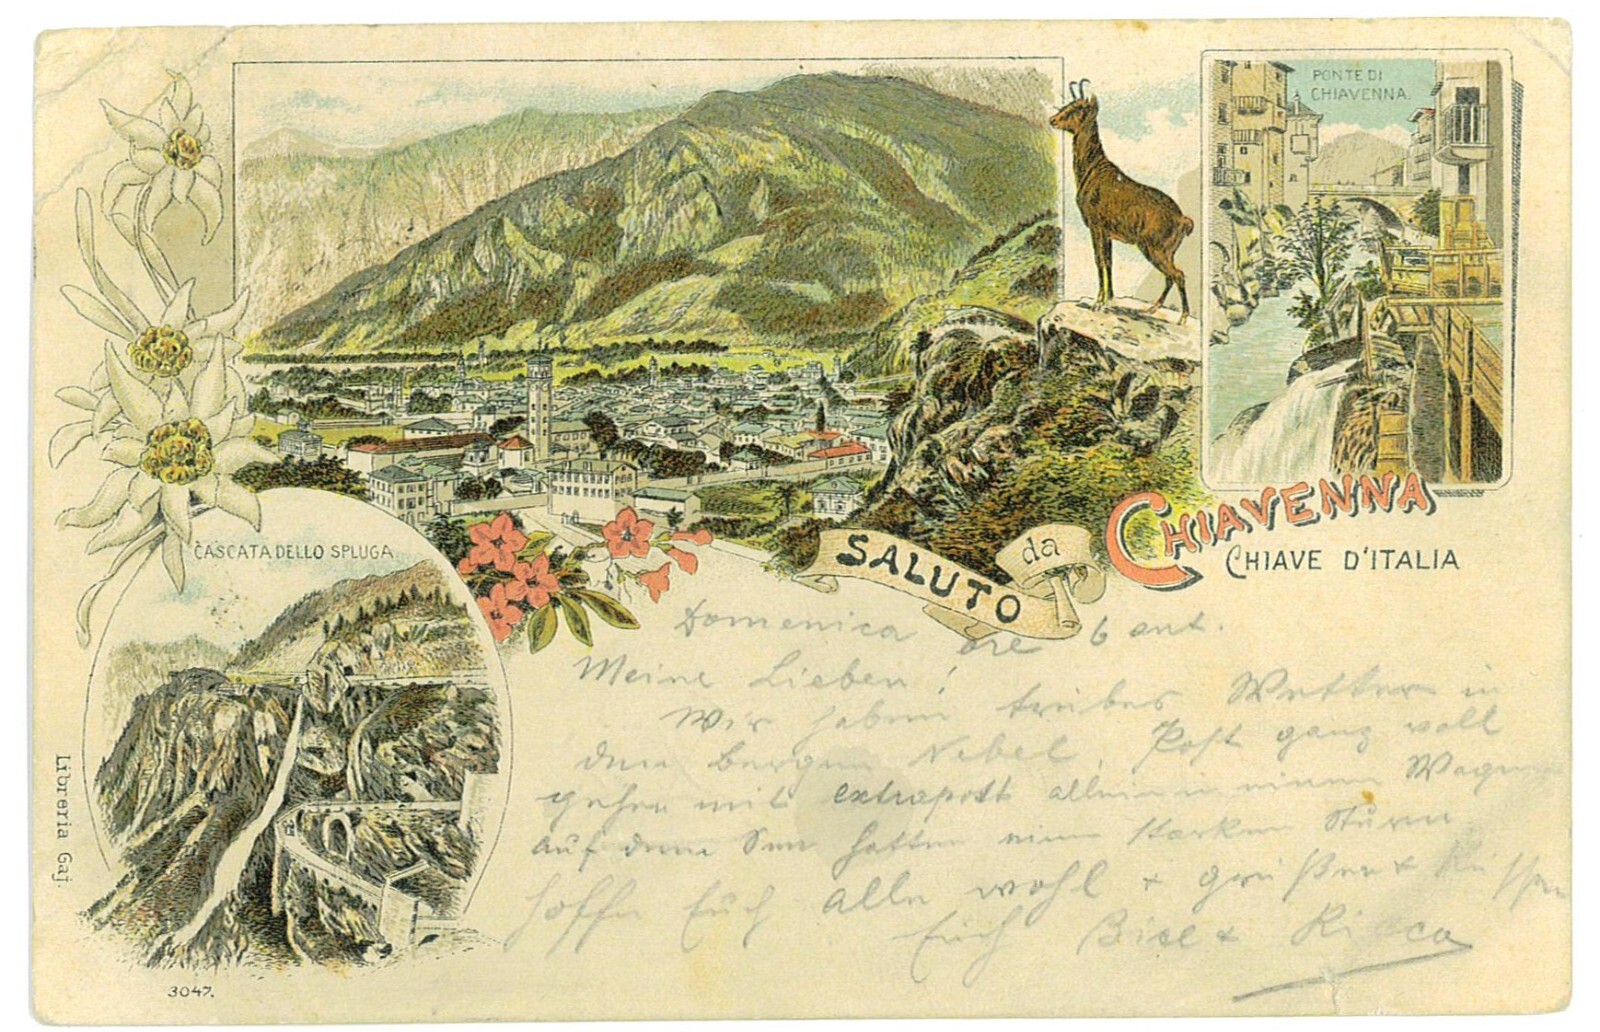 PONTE DI
CHIAVENNA.
SALUTO da CHIAVENNA
CHIAVE D'ITALIA
CASCATA DELLO SPLUGA
Domenica ore 6 ant.
Meine Lieben!
Wir haben trübes Wetter in
den Bergen Nebel, Post ganz voll
gehen mit extrapost allein in einem Wagen
auf dem See hatten einen starken Sturm
hoffe Euch alle wohl & grüßen & küssen
Euch Bice &
Libreria Gaj.
3047.